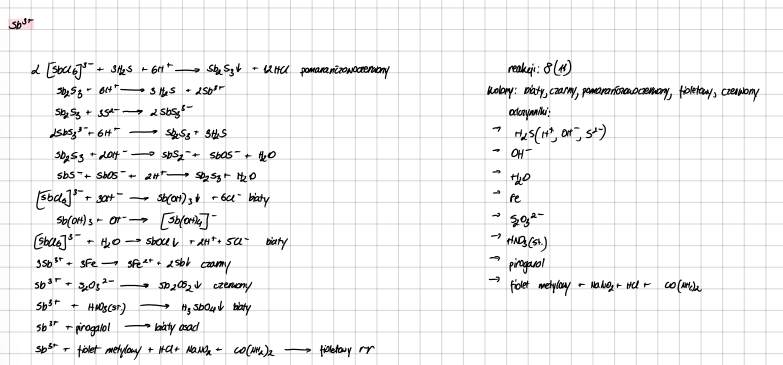 Sb³⁺
2 [SbCl₆]³⁻ + 3H₂S + 6H⁺ → Sb₂S₃↓ + 12HCl pomarańczowoczerwony
Sb₂S₃ + 6H⁺ → 3H₂S + 2Sb³⁺
Sb₂S₃ + 3S²⁻ → 2SbS₃³⁻
2SbS₃³⁻ + 6H⁺ → Sb₂S₃ + 3H₂S
Sb₂S₃ + 2OH⁻ → SbS₂⁻ + SbOS⁻ + H₂O
SbS⁻ + SbOS⁻ + 2H⁺ → Sb₂S₃ + H₂O
[SbCl₆]³⁻ + 3OH⁻ → Sb(OH)₃↓ + 6Cl⁻ biały
Sb(OH)₃ + OH⁻ → [Sb(OH)₄]⁻
[SbCl₆]³⁻ + H₂O → SbOCl↓ + 2H⁺ + 5Cl⁻ biały
3Sb³⁺ + 3Fe → 3Fe²⁺ + 2Sb↓ czarny
Sb³⁺ + S₂O₃²⁻ → Sb₂OS₂↓ czerwony
Sb³⁺ + HNO₃(st.) → H₃SbO₄↓ biały
Sb³⁺ + pirogalol → biały osad
Sb³⁺ + fiolet metylowy + HCl + NaNO₂ + CO(NH₂)₂ → fioletowy rr
reakcji: 8 (14)
kolory: biały, czarny, pomarańczowoczerwony, fioletowy, czerwony
odczynniki:
→ H₂S (H⁺, OH⁻, S²⁻)
→ OH⁻
→ H₂O
→ Fe
→ S₂O₃²⁻
→ HNO₃(st.)
→ pirogalol
→ fiolet metylowy + NaNO₂ + HCl + CO(NH₂)₂